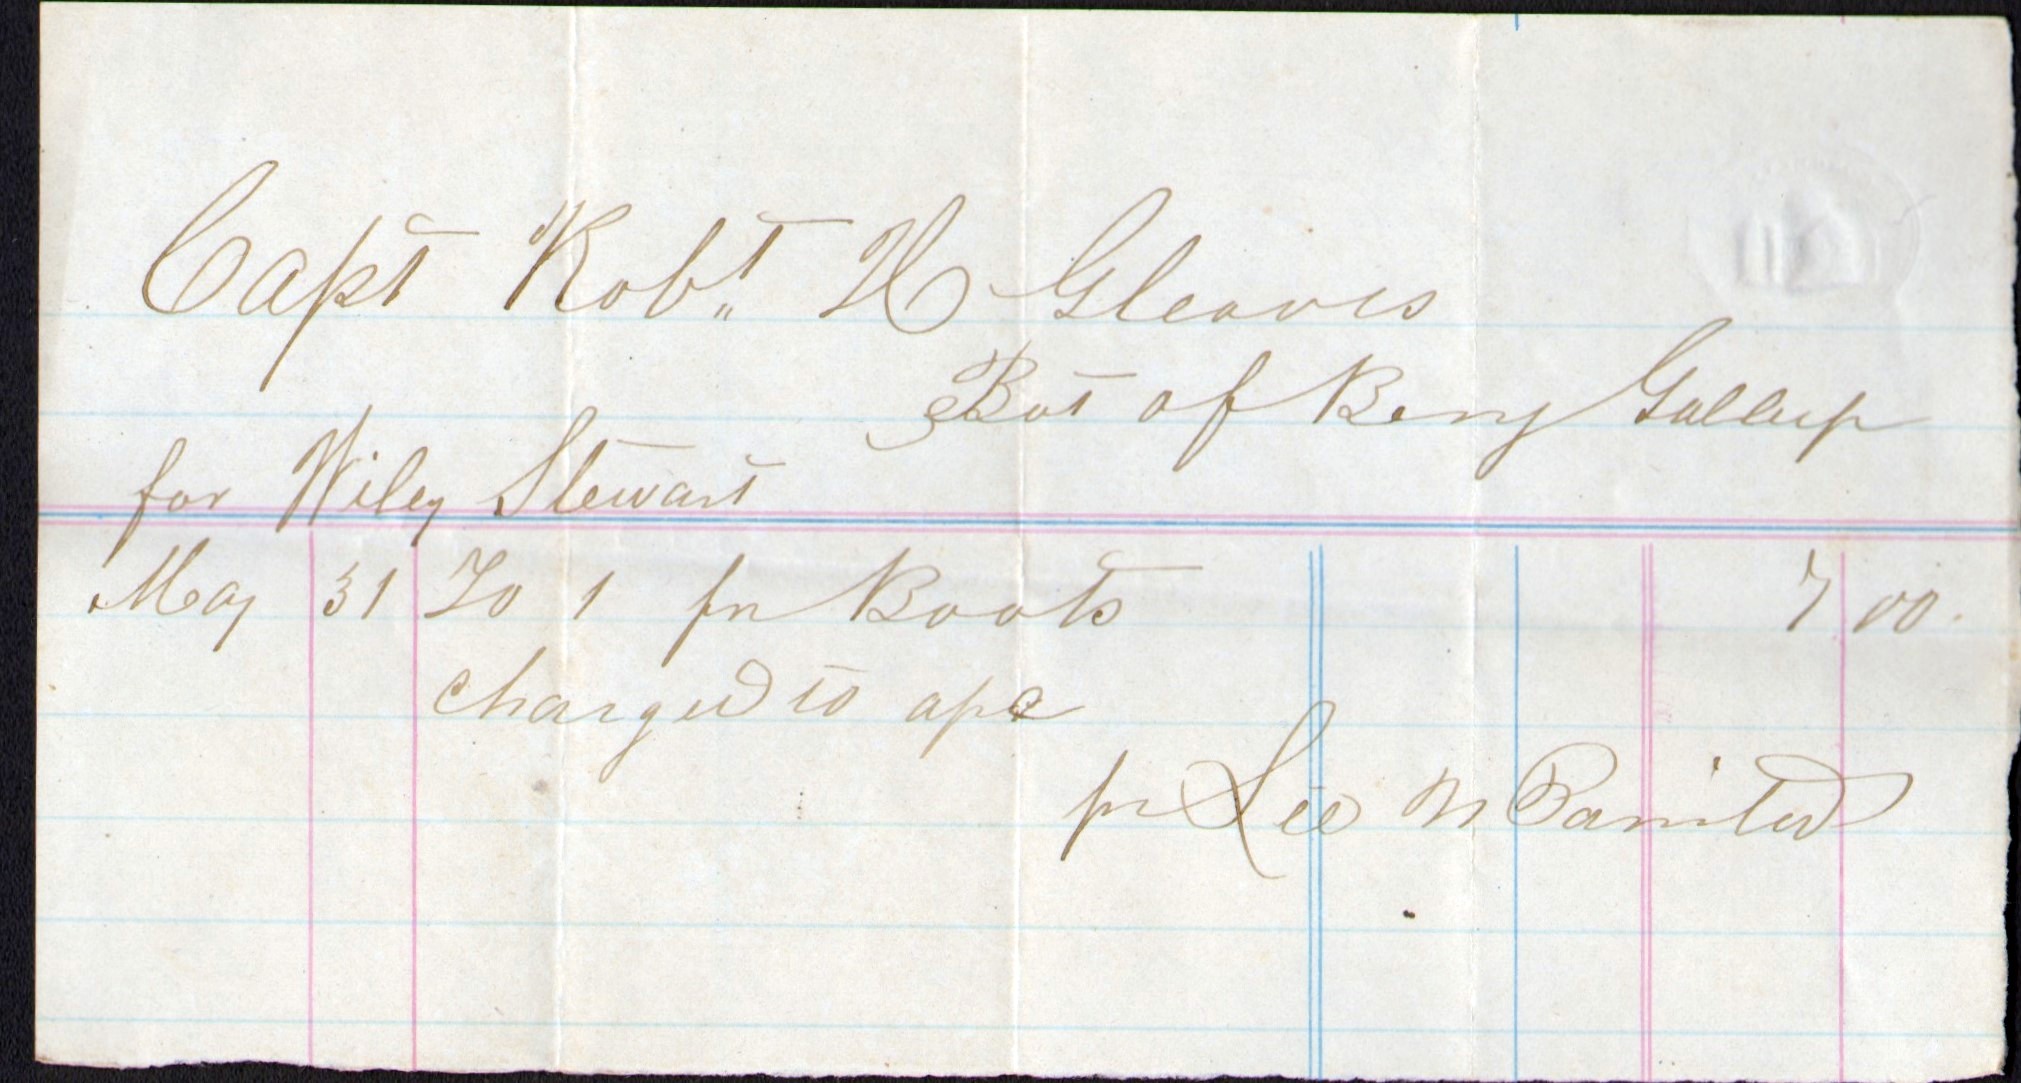 Capt Robt. H Gleaves
Bot of Benj Gallup
for Wiley Stewart
May 31 To 1 pr Boots 7 00.
charged to a/c
pr Lee M